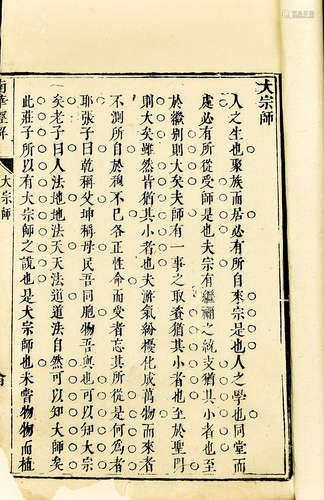 大宗師
人之生也聚族而居必有所自來宗是也人之學也同堂而
處必有所從受師是也夫宗有繼禰之統支猶其小者也至
於徽別則大矣夫師有一事之取資猶其小者也至於聖門
則大矣雖然皆猶其小者也夫游氣紛擾化成萬物而來者
不測所自於穆不已各正性命而受者忘其所從是何為者
耶張子曰乾稱父坤稱母民吾同胞物吾與也可以知大宗
矣老子曰人法地地法天天法道道法自然可以知大師矣
此莊子所以有大宗師之說也是大宗師也未嘗物物而植
南華經解
大宗師